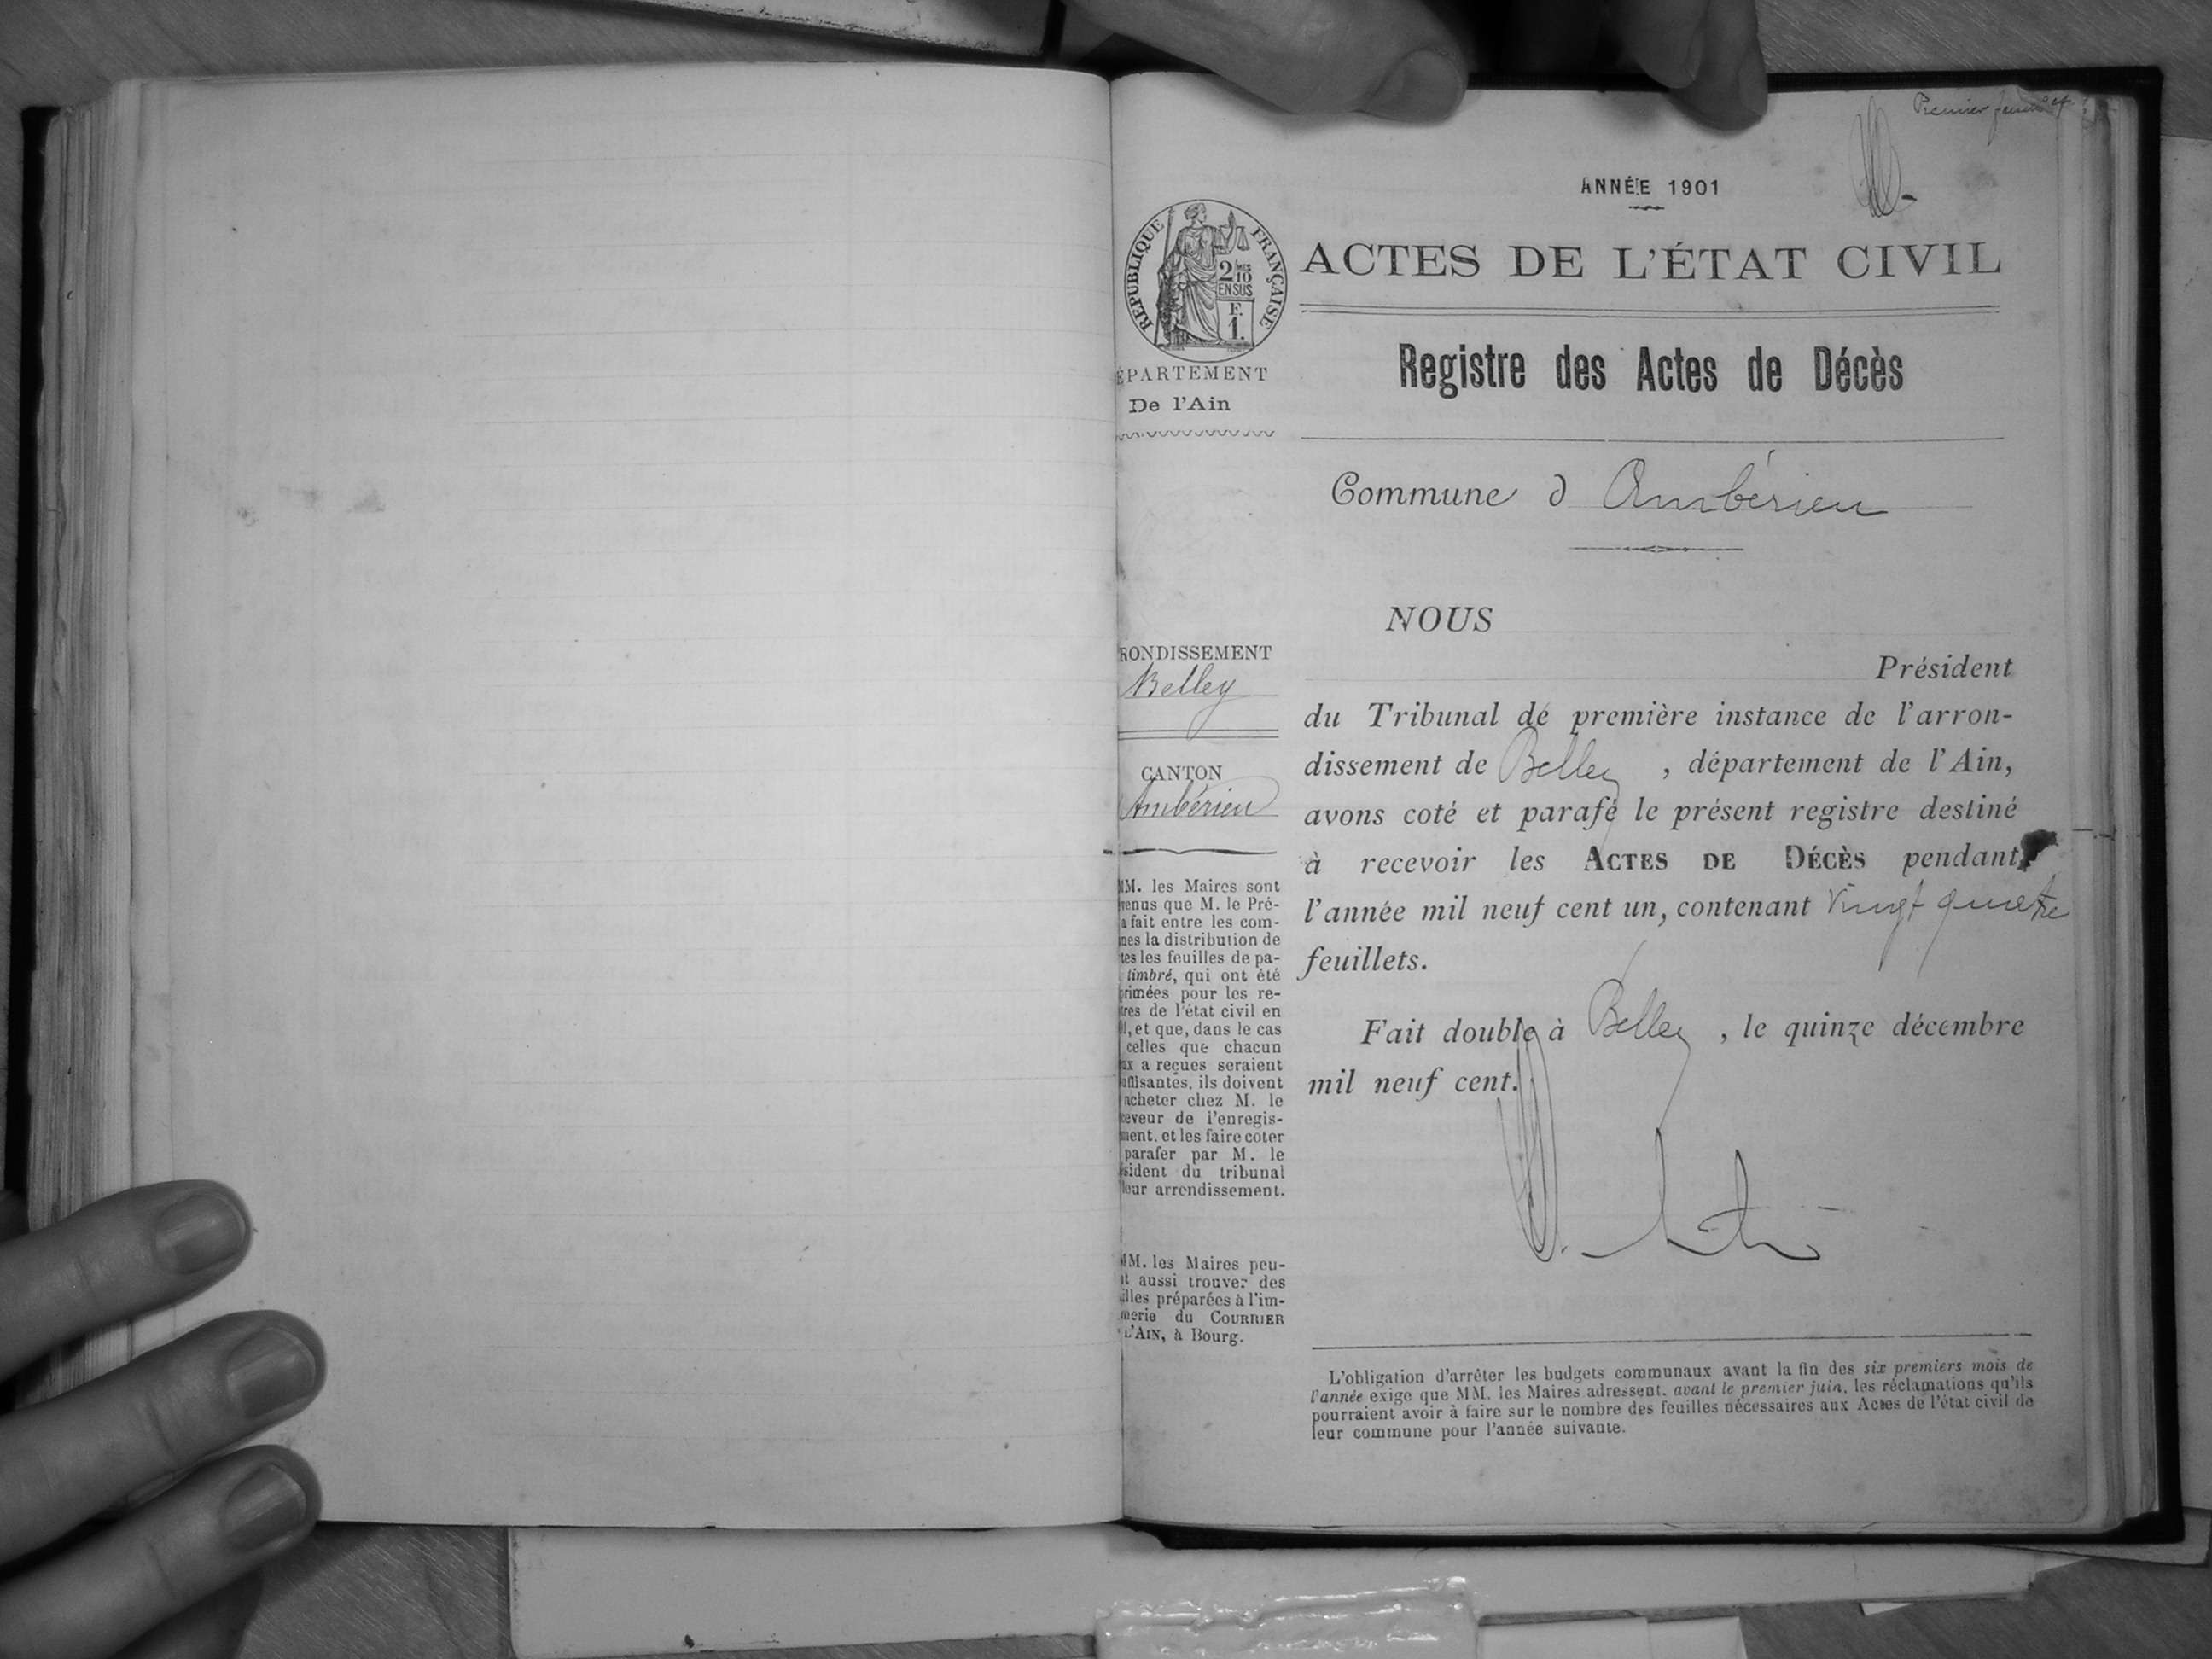 Premier feuillet
ANNÉE 1901
RÉPUBLIQUE FRANÇAISE
2 MES
10
EN SUS
F.
1.
ACTES DE L'ÉTAT CIVIL
Registre des Actes de Décès
ÉPARTEMENT
De l'Ain
Commune d Ambérieu
RONDISSEMENT
Belley
CANTON
Ambérieu
MM. les Maires sont
venus que M. le Pré-
a fait entre les com-
nes la distribution de
tes les feuilles de pa-
timbré, qui ont été
primées pour les re-
tres de l'état civil en
1, et que, dans le cas
celles que chacun
ux a reçues seraient
uffisantes, ils doivent
acheter chez M. le
ceveur de l'enregis-
ment, et les faire coter
parafer par M. le
sident du tribunal
leur arrondissement.
MM. les Maires peu-
t aussi trouver des
illes préparées à l'im-
merie du COURRIER
L'AIN, à Bourg.
NOUS
Président
du Tribunal de première instance de l'arron-
dissement de Belley , département de l'Ain,
avons coté et parafé le présent registre destiné
à recevoir les ACTES DE DÉCÈS pendant
l'année mil neuf cent un, contenant vingt quatre
feuillets.
Fait double à Belley , le quinze décembre
mil neuf cent.
L'obligation d'arrêter les budgets communaux avant la fin des six premiers mois de
l'année exige que MM. les Maires adressent, avant le premier juin, les réclamations qu'ils
pourraient avoir à faire sur le nombre des feuilles nécessaires aux Actes de l'état civil de
leur commune pour l'année suivante.